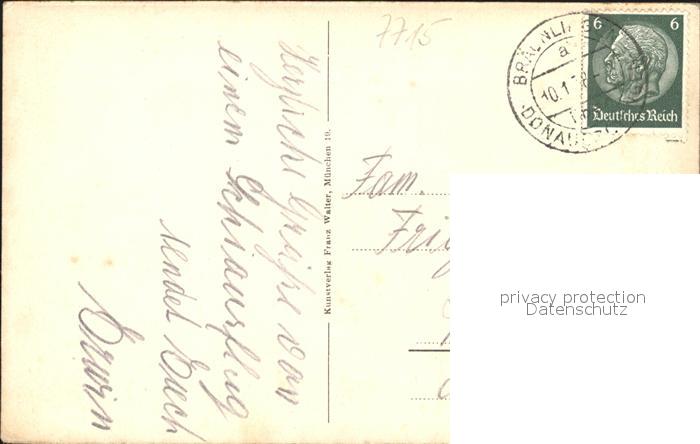 7715
Herzliche Grüße von
einem Schiausflug
sendet Euch
Erwin
Kunstverlag Franz Walter, München 19.
Fam.
BRÄUNLI
a
10.1.
DONAU
6 6
Deutsches Reich
privacy protection
Datenschutz